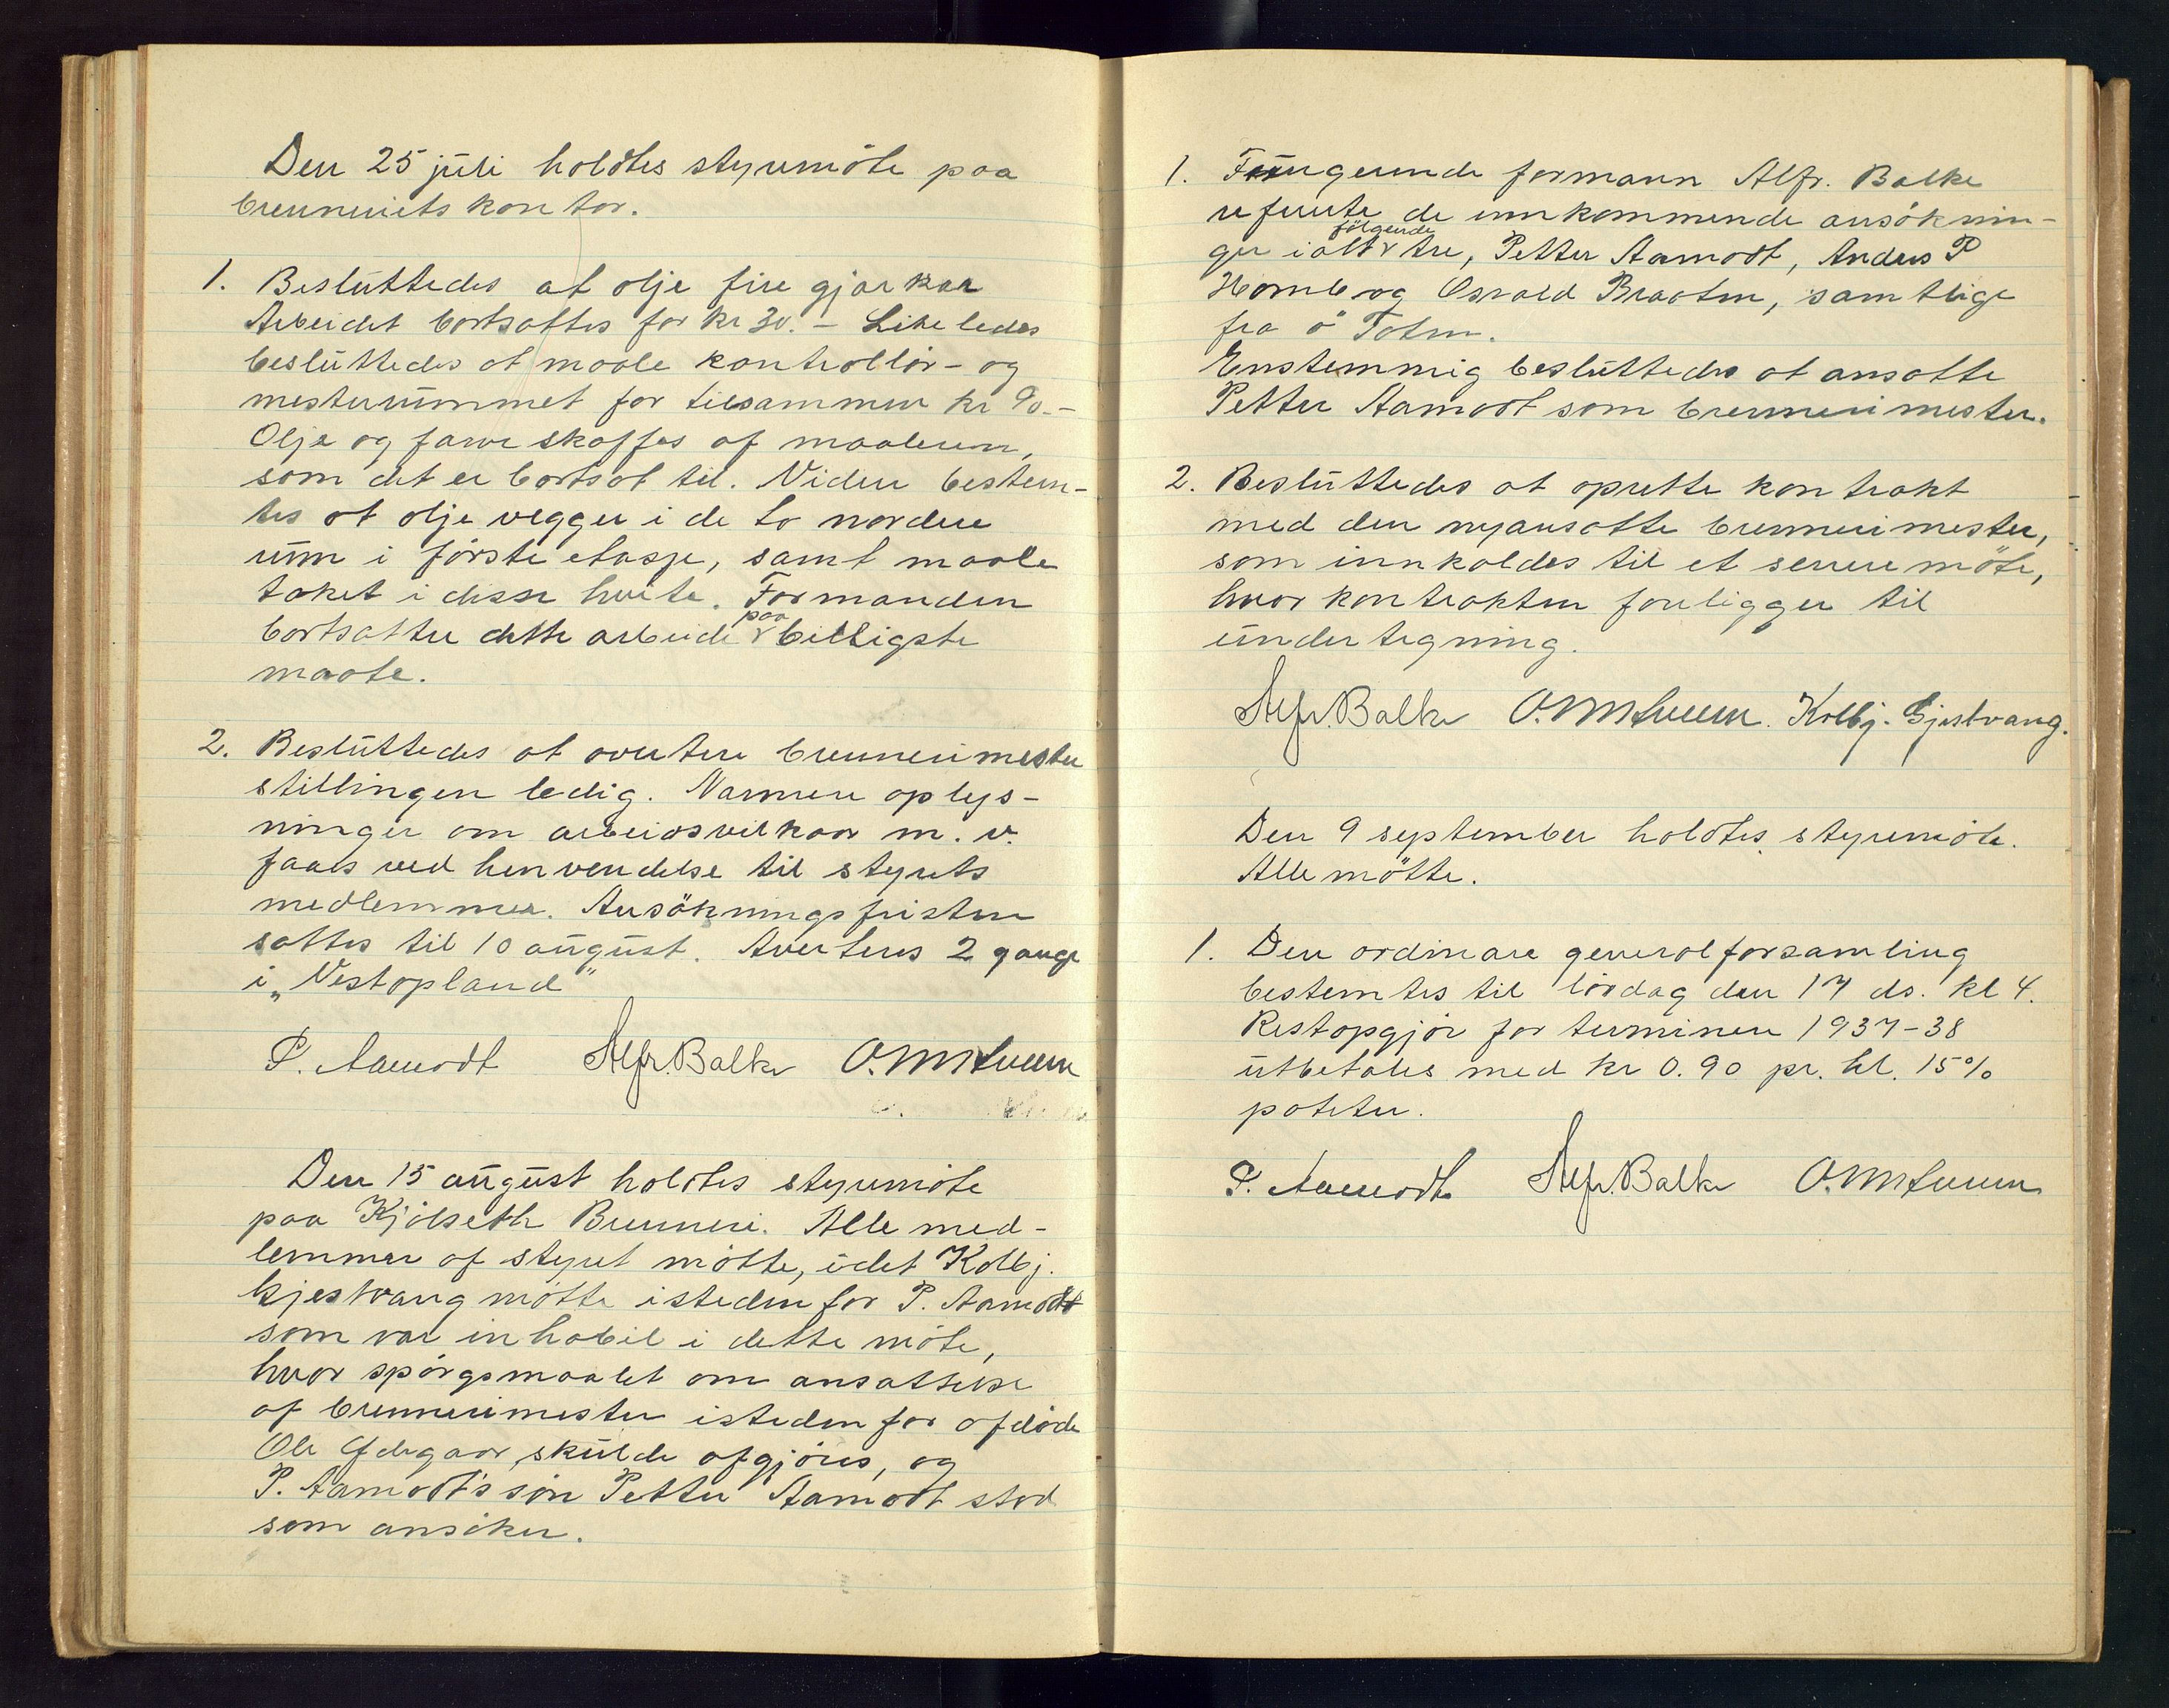 Den 25 juli holdtes styremöte paa
brenneriets kontor.
1. Besluttedes at olje fire gjærkar
Arbeidet bortsattes for kr 30.- Likeledes
besluttedes at maale kontrollör- og
mesterrummet for tilsammen kr 90.-
Olje og farve skaffes af maaleren,
som det er bortsat til. Videre bestem-
tes at olje vegger i de to nordre
rum i förste etasje, samt maale
taket i disse hvite. Formanden
bortsatter dette arbeide paa billigste
maate.
2. Besluttedes at avertere brennerimester
stillingen ledig. Nærmere oplys-
ninger om arbeidsvilkaar m. v.
faaes ved henvendelse til styrets
medlemmer. Ansökningsfristen
sattes til 10 august. Averteres 2 gange
i „Vestopland"
P. Aamodt Alfr. Balke
Den 15 august holdtes styremöte
paa Kjölseth Brenneri. Alle med-
lemmer af styret mötte, idet Kolbj.
Gjestvang mötte istedenfor P. Aamodt
som var inhabil i dette möte,
hvor spörgsmaalet om ansættelse
af brennerimester istedenfor afdöde
Ole skulde afgjöres, og
P. Aamodt's sön Petter Aamodt stod
som ansöker.
1. Fungerende formann Alfr. Balke
refererte de innkommende ansöknin-
ger ialt følgende tre, Petter Aamodt, Anders P
Homb og Osvald Braaten, samtlige
fra ö Toten.
Enstemmig besluttedes at ansatte
Petter Aamodt som brennerimester.
2. Besluttedes at oprette kontrakt
med den nyansatte brennerimester,
som innkaldes til et senere möte,
hvor kontrakten foreligger til
undertegning.
Alfr. Balke Kolbj. Gjestvang.
Den 9 september holdtes styremöte.
Alle mötte.
1. Den ordinære generalforsamling
bestemtes til lördag den 17 ds. kl 4.
Restopgjör for terminen 1937-38
utbetales med kr 0.90 pr. hl. 15%
poteter.
P. Aamodt Alfr. Balke